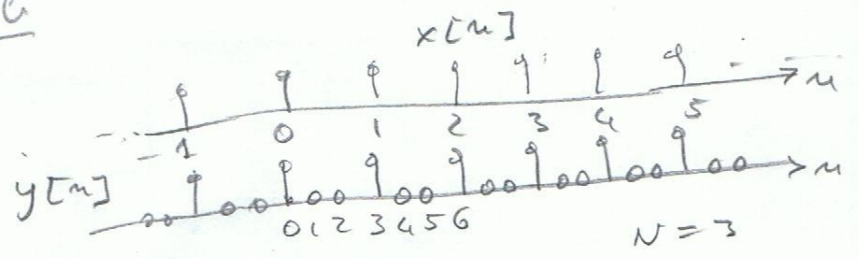 x[n]
n
-1 0 1 2 3 4 5
y[n] n
0 1 2 3 4 5 6
N = 3